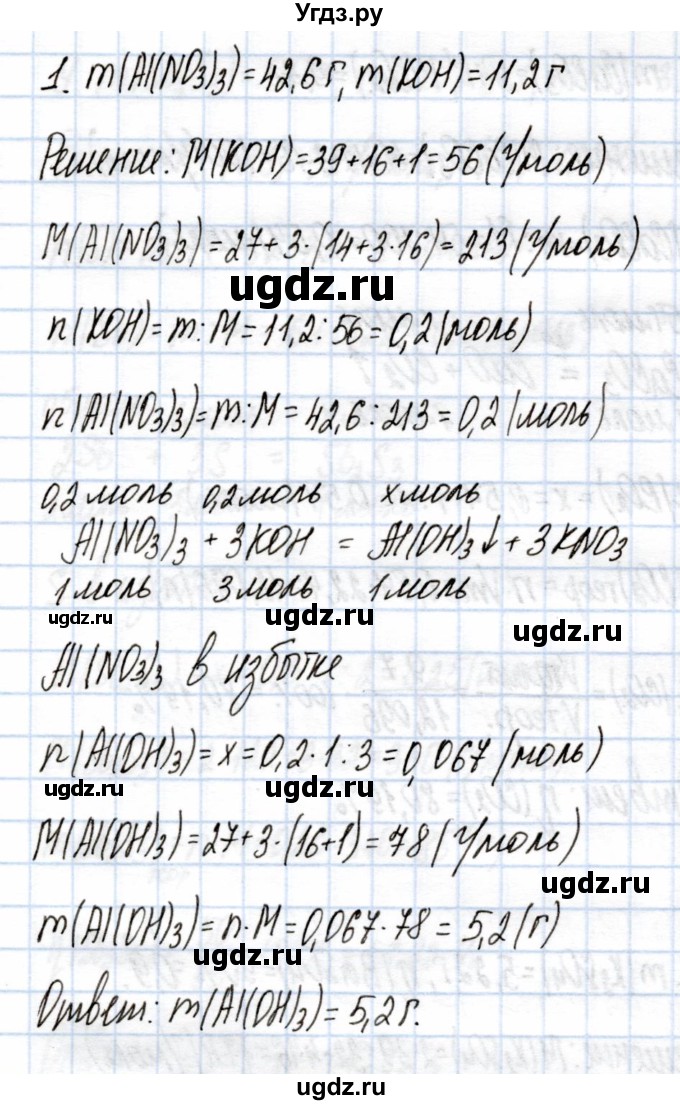 Угдз.ру
1. m(Al(NO₃)₃)=42,6г, m(KOH)=11,2г
Решение: M(KOH)=39+16+1=56(г/моль)
M(Al(NO₃)₃)=27+3·(14+3·16)=213(г/моль)
ugdz.ru
n(KOH)=m:M=11,2:56=0,2(моль)
n(Al(NO₃)₃)=m:M=42,6:213=0,2(моль)
0,2моль 0,2моль xмоль
Al(NO₃)₃ + 3KOH = Al(OH)₃↓ + 3KNO₃
1моль 3моль 1моль
ugdz.ru ugdz.ru ugdz.ru
Al(NO₃)₃ в избытке
n(Al(OH)₃)=x=0,2·1:3=0,067(моль)
ugdz.ru ugdz.ru
M(Al(OH)₃)=27+3·(16+1)=78(г/моль)
ugdz.ru
m(Al(OH)₃)=n·M=0,067·78=5,2(г)
ugdz.ru
Ответ: m(Al(OH)₃)=5,2г.
ugdz.ru